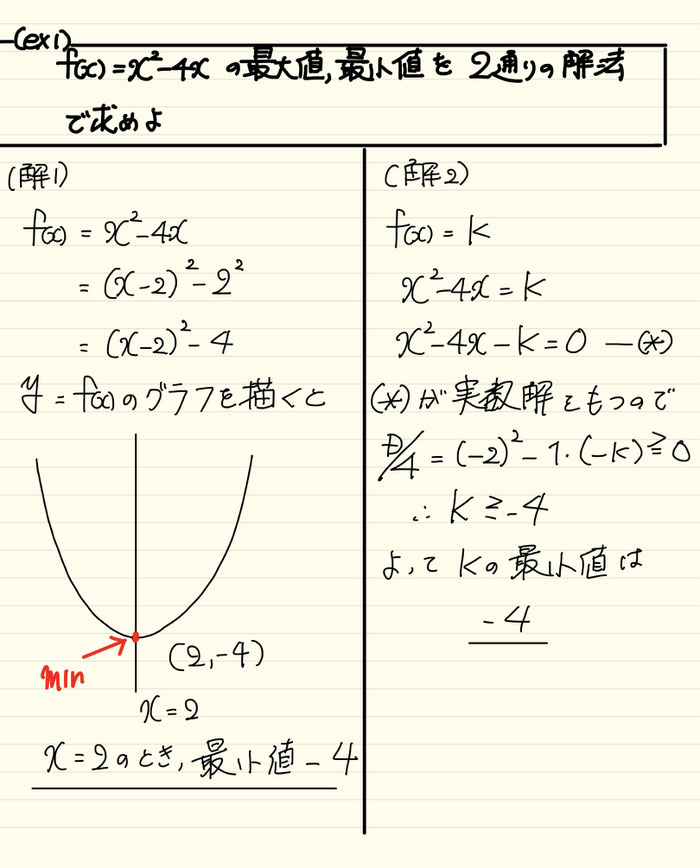 (ex1)
f(x)=x²-4x の最大値,最小値を 2通りの解法
で求めよ
(解1)
f(x) = x²-4x
= (x-2)²-2²
= (x-2)²-4
y=f(x)のグラフを描くと
min
(2,-4)
x=2
x=2のとき,最小値-4
(解2)
f(x)=k
x²-4x=k
x²-4x-k=0 —(*)
(*)が実数解をもつので
D/4=(-2)²-1・(-k)≧0
∴ k≧-4
よって kの最小値は
-4